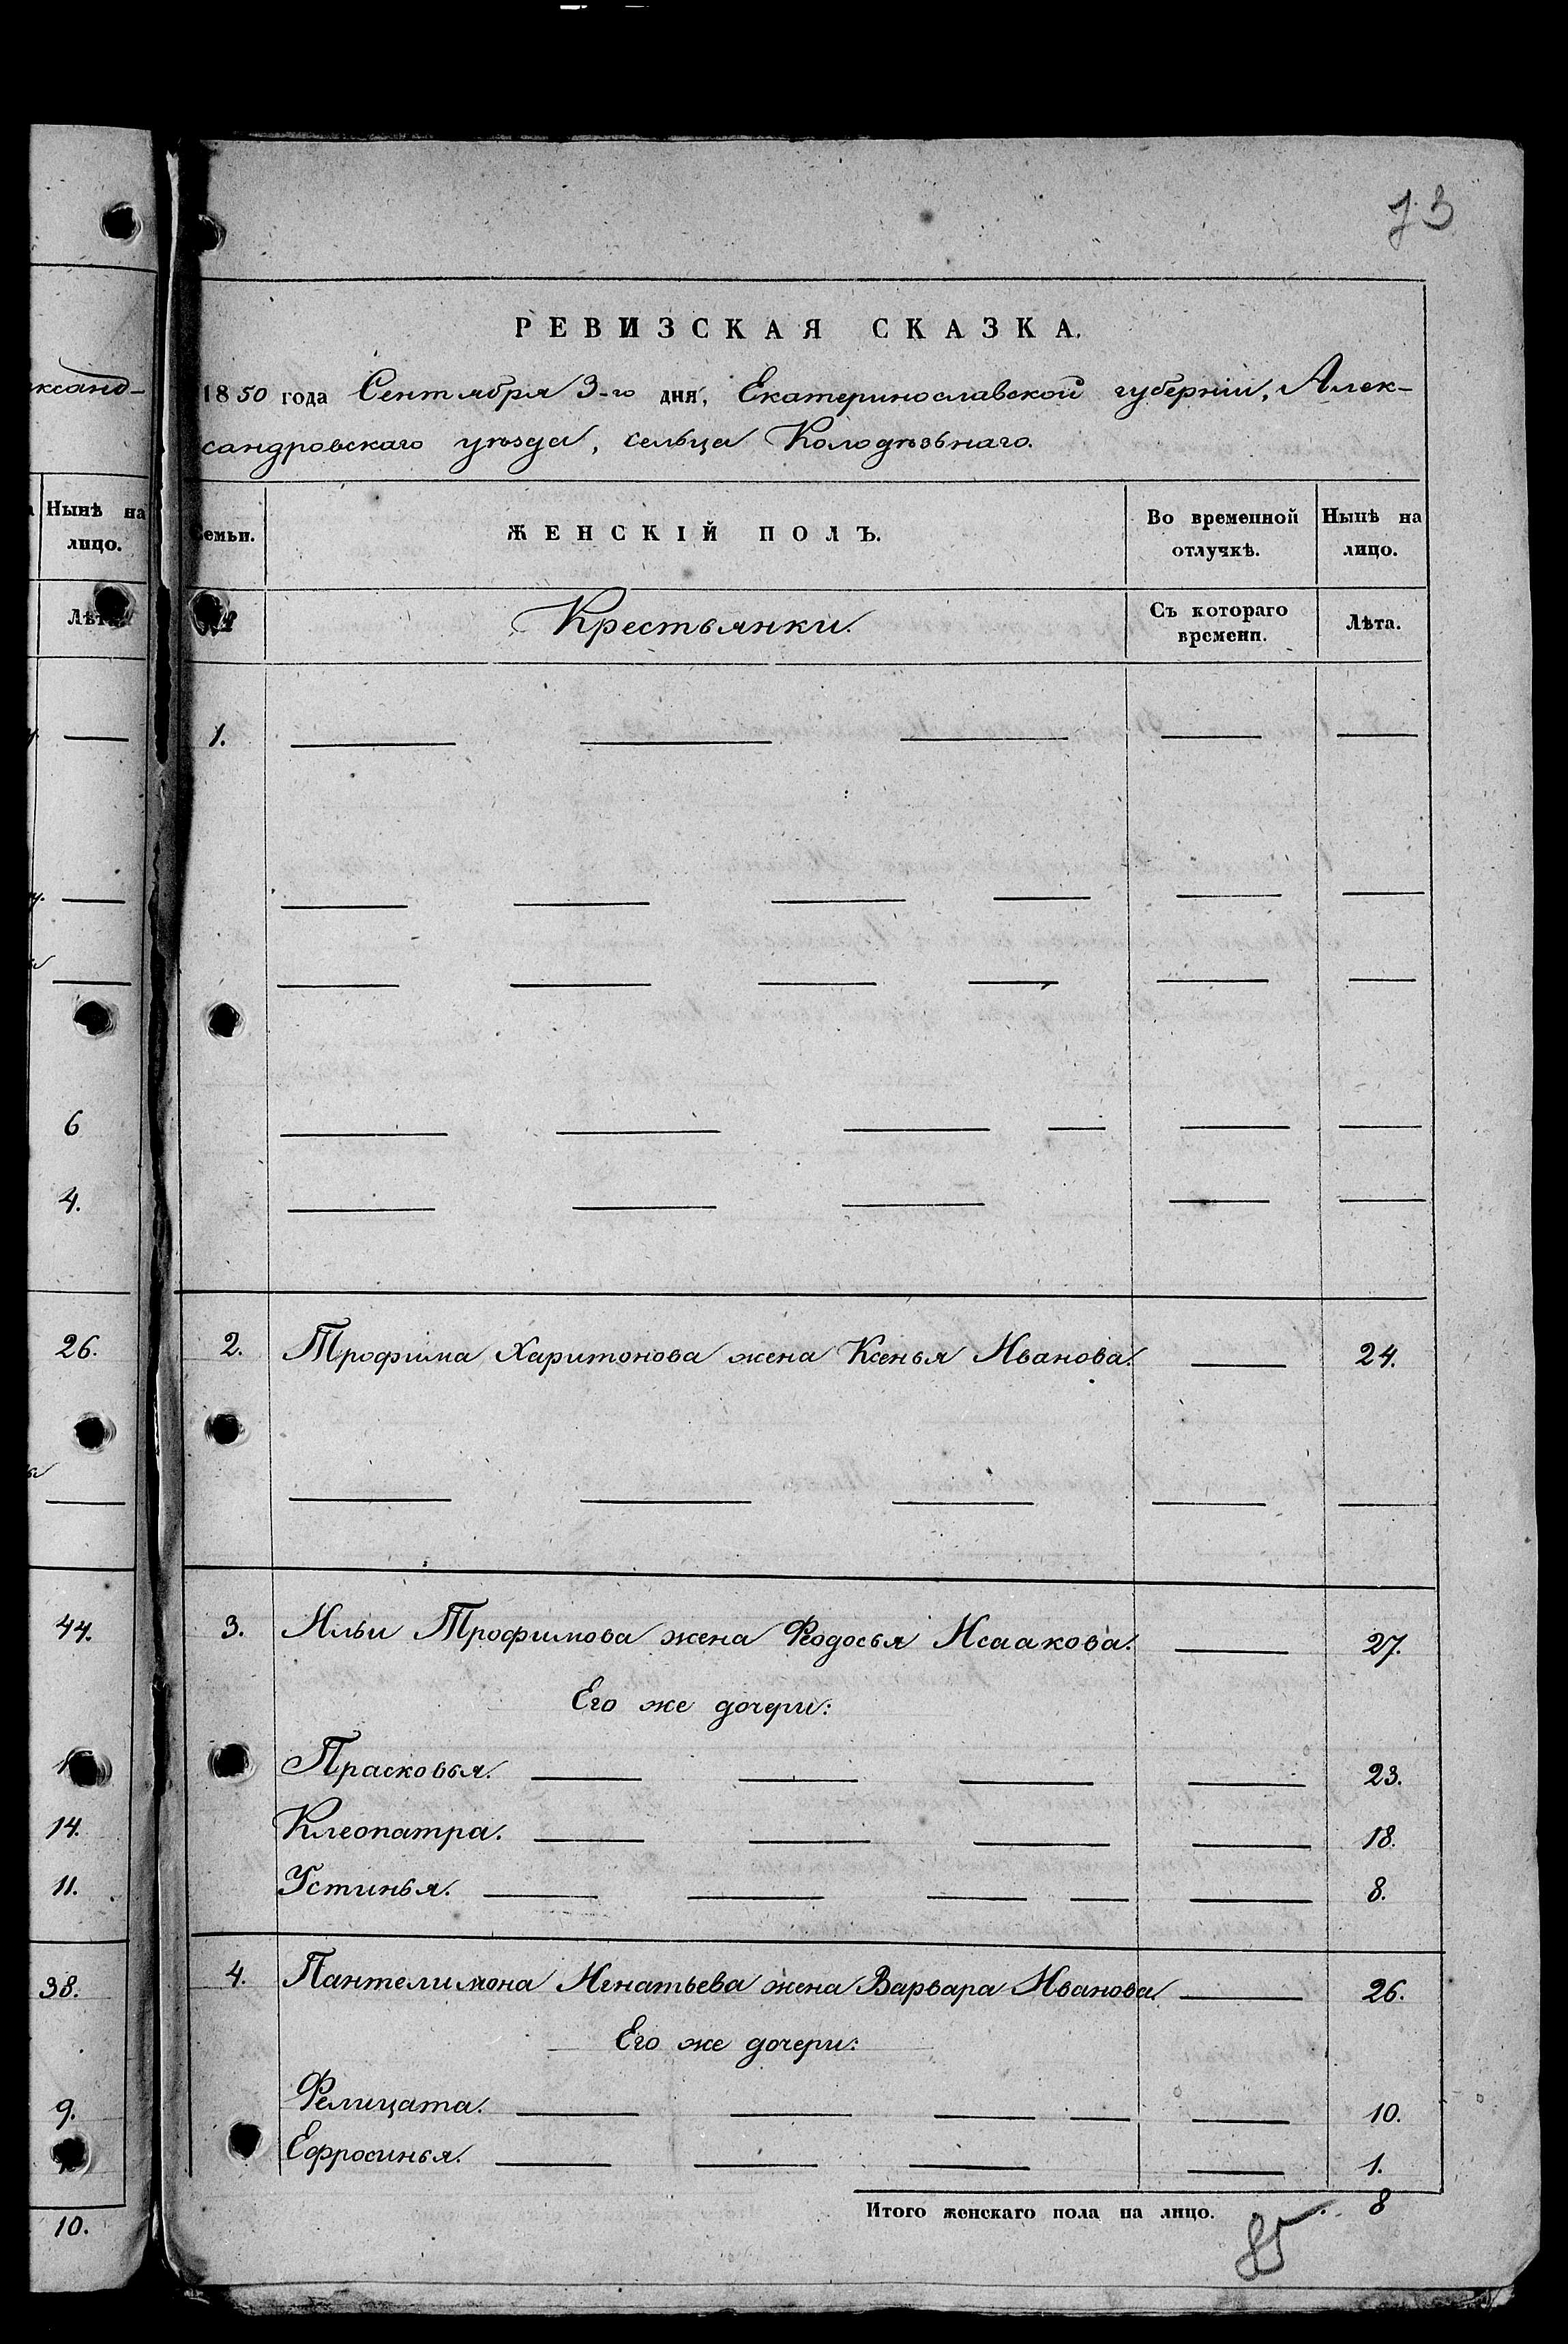 73
РЕВИЗСКАЯ СКАЗКА.
1850 года Сентября 3-го дня, Екатеринославской губерніи, Алек-
сандровскаго уѣзда, сельца Колодѣзьнаго.
ксанд-
Нынѣ на
лицо.
Семьи.
ЖЕНСКІЙ ПОЛЪ.
Во временной
отлучкѣ.
Нынѣ на
лицо.
Лѣта
Крестьянки.
Съ котораго
времени.
Лѣта.
1.
6
4.
26.
2. Трофима Харитонова жена Ксенья Иванова. 24.
44.
3. Ильи Трофимова жена Феодосья Исаакова. 27.
Его же дочери:
Прасковья. 23.
14.
Клеопатра. 18.
11.
Устинья. 8.
38.
4. Пантелимона Игнатьева жена Варвара Иванова. 26.
Его же дочери:
9.
Фелицата. 10.
Ефросинья. 1.
10.
Итого женскаго пола на лицо. 8
85